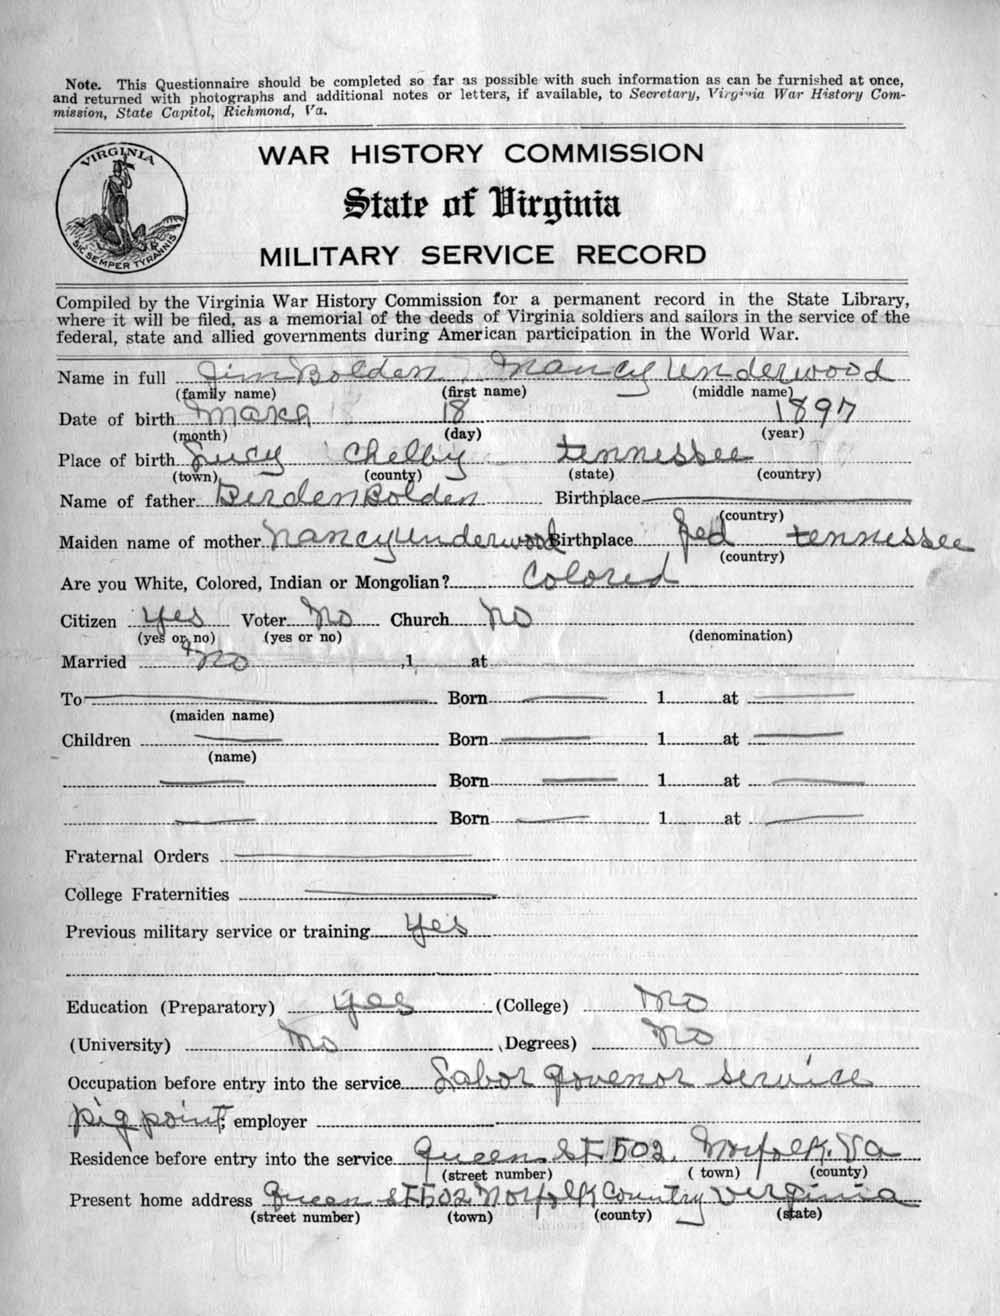 Note. This Questionnaire should be completed so far as possible with such information as can be furnished at once,
and returned with photographs and additional notes or letters, if available, to Secretary, Virginia War History Com-
mission, State Capitol, Richmond, Va.
VIRGINIA
SIC SEMPER TYRANNIS
WAR HISTORY COMMISSION
State of Virginia
MILITARY SERVICE RECORD
Compiled by the Virginia War History Commission for a permanent record in the State Library,
where it will be filed, as a memorial of the deeds of Virginia soldiers and sailors in the service of the
federal, state and allied governments during American participation in the World War.
Name in full Jim Bolden, Nancy Underwood
(family name) (first name) (middle name)
Date of birth March 18 1897
(month) (day) (year)
Place of birth Lucy Chelby tennessee
(town) (county) (state) (country)
Name of father Berden Bolden Birthplace
(country)
Maiden name of mother Nancy Underwood Birthplace tennessee
(country)
Are you White, Colored, Indian or Mongolian? Colored
Citizen yes Voter No Church No
(yes or no) (yes or no) (denomination)
Married No , 1 at
To Born 1 at
(maiden name)
Children Born 1 at
(name)
Born 1 at
Born 1 at
Fraternal Orders
College Fraternities
Previous military service or training yes
Education (Preparatory) yes (College) No
(University) No (Degrees) No
Occupation before entry into the service Labor govenor service
pig point; employer
Residence before entry into the service Queen St. 502. Norfolk. Va
(street number) (town) (county)
Present home address Queen St 502 Norfolk Country Verginia
(street number) (town) (county) (state)